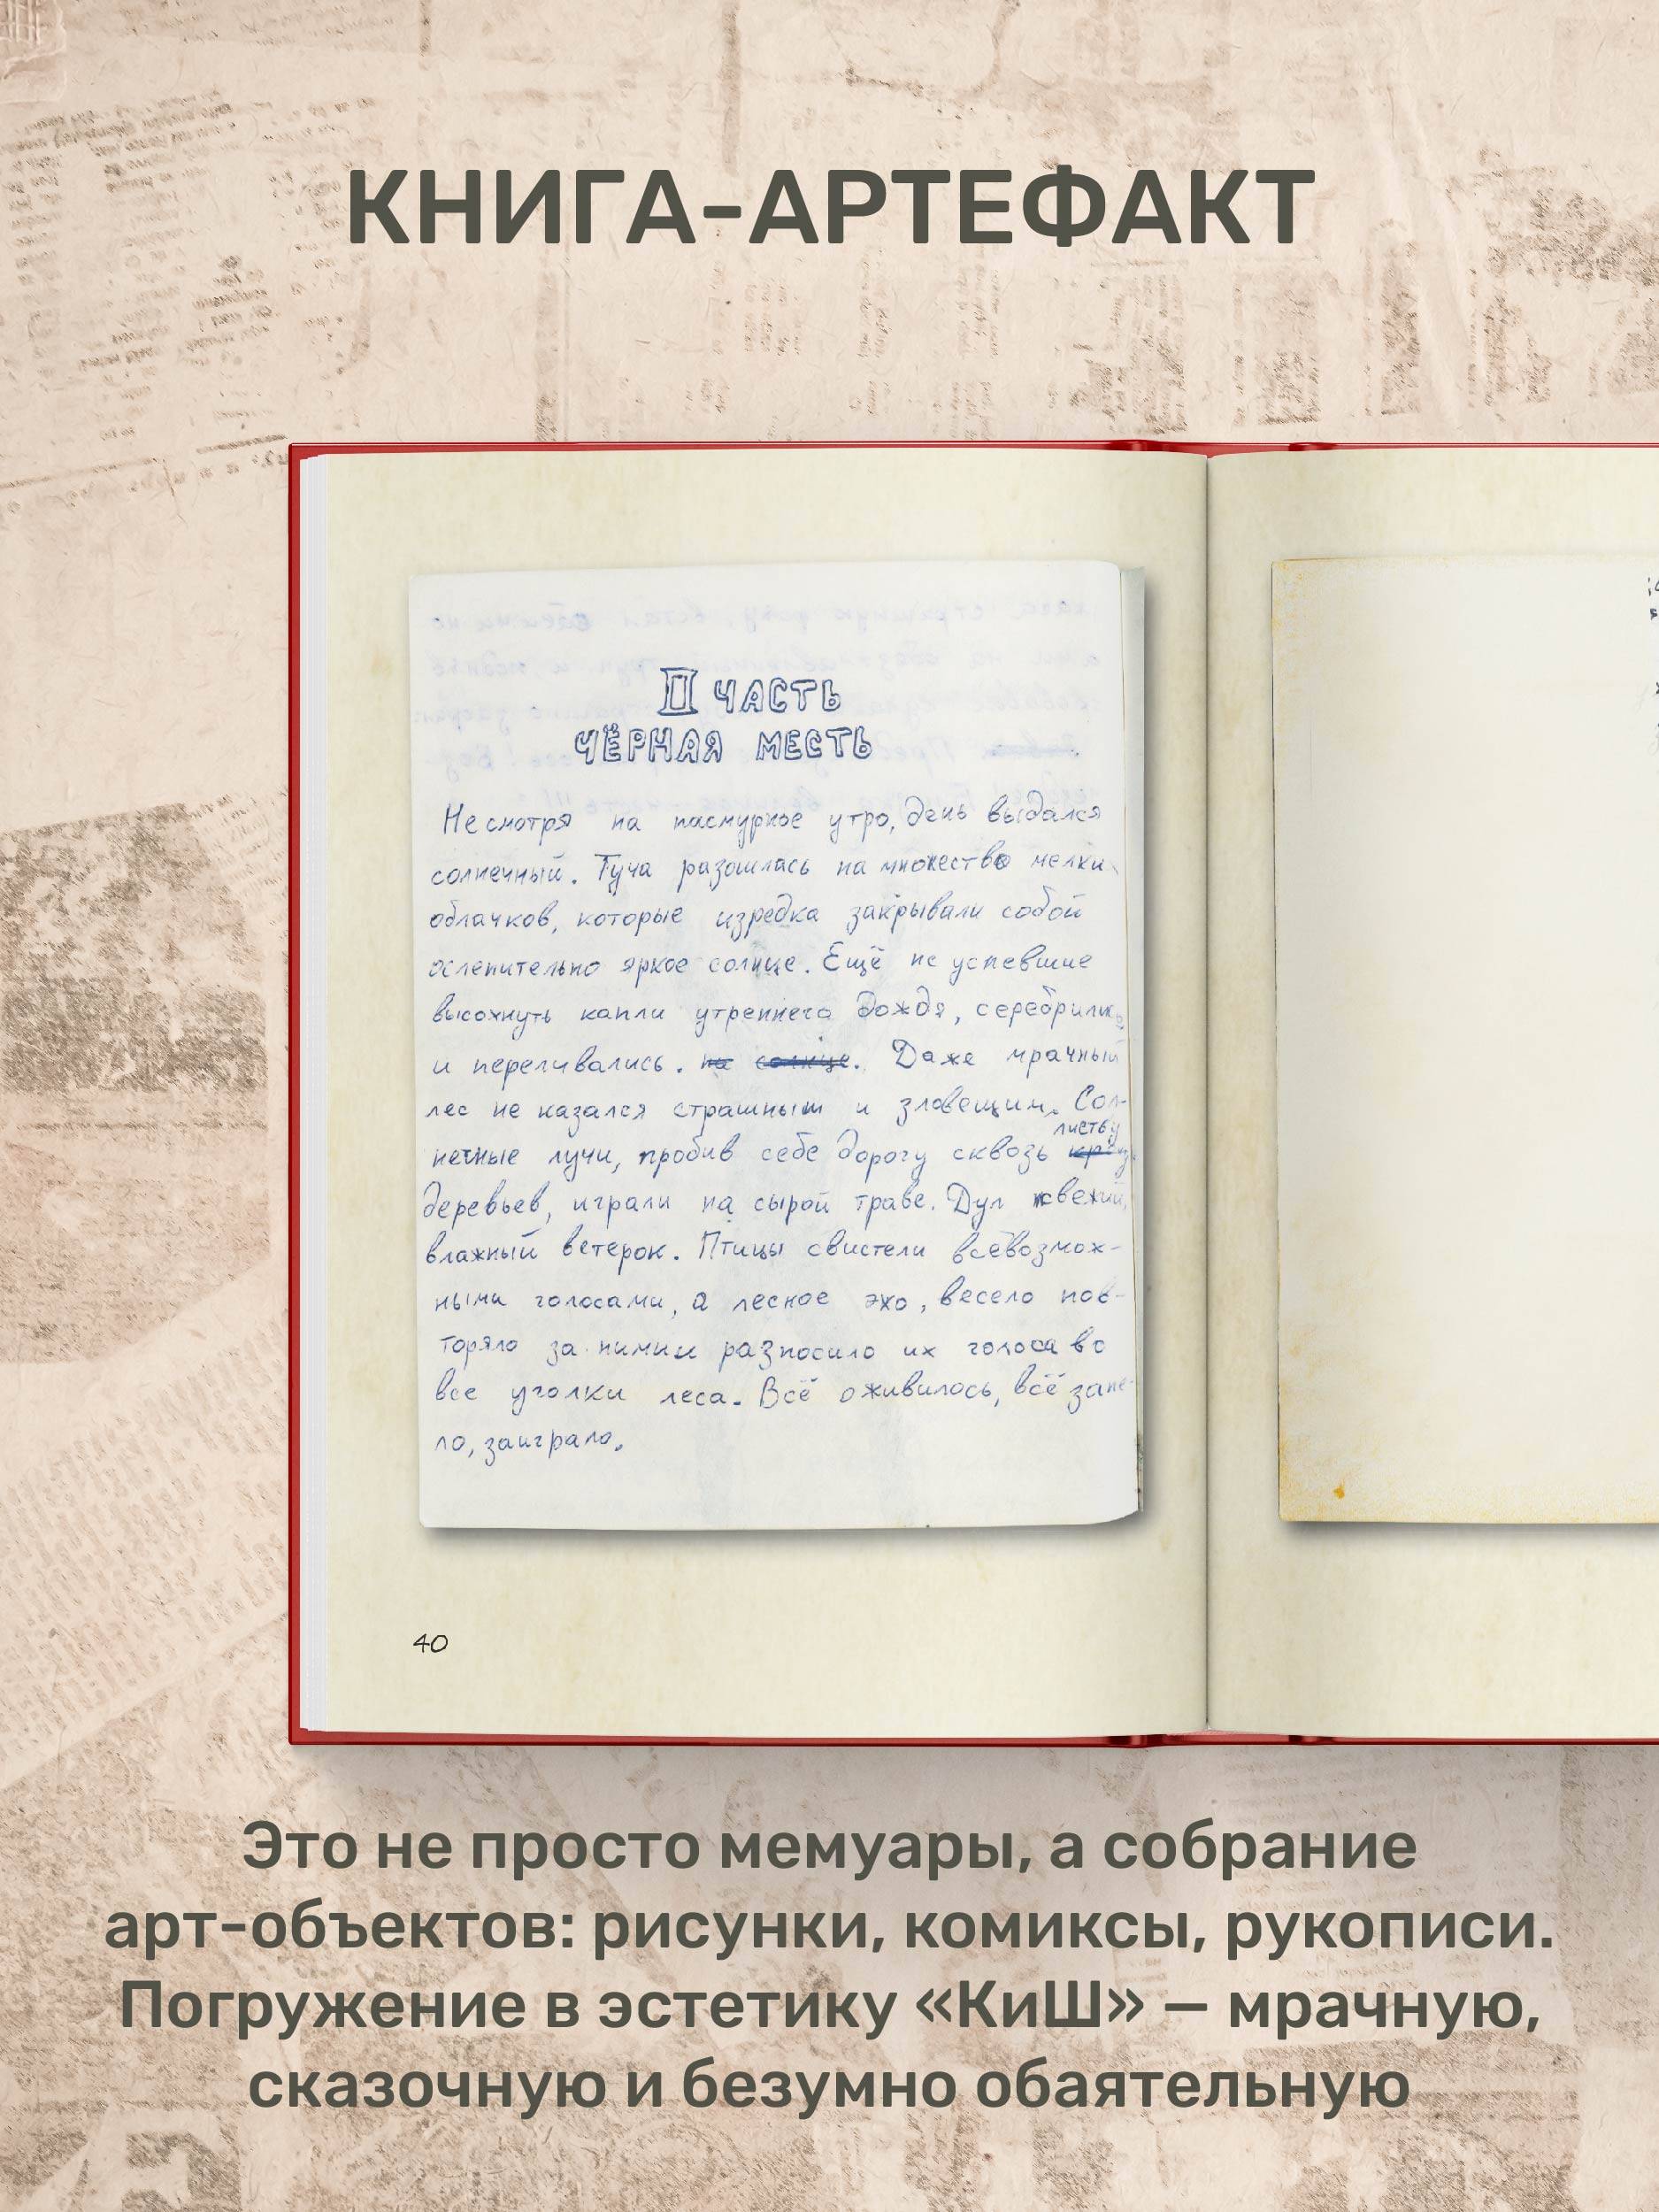 КНИГА-АРТЕФАКТ
II ЧАСТЬ
ЧЁРНАЯ МЕСТЬ
Несмотря на пасмурное утро, день выдался
солнечный. Туча разошлась на множество мелких
облачков, которые изредка закрывали собой
ослепительно яркое солнце. Ещё не успевшие
высохнуть капли утреннего дождя, серебрились
и переливались. на солнце. Даже мрачный
лес не казался страшным и зловещим. Сол-
листву
нечные лучи, пробив себе дорогу сквозь
деревьев, играли на сырой траве. Дул свежий,
влажный ветерок. Птицы свистели всевозмож-
ными голосами, а лесное эхо, весело пов-
торяло за ними и разносило их голоса во
все уголки леса. Всё оживилось, всё запе-
ло, заиграло.
40
Это не просто мемуары, а собрание
арт-объектов: рисунки, комиксы, рукописи.
Погружение в эстетику «КиШ» — мрачную,
сказочную и безумно обаятельную